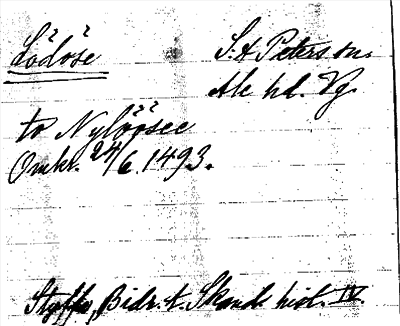 Lödöse
S. A Peterson.
Ale hd. Vg.
to Nylöösee
Omkr. 24/6. 1493.
Styffe, Bidr. t. Skand. hist. IV.